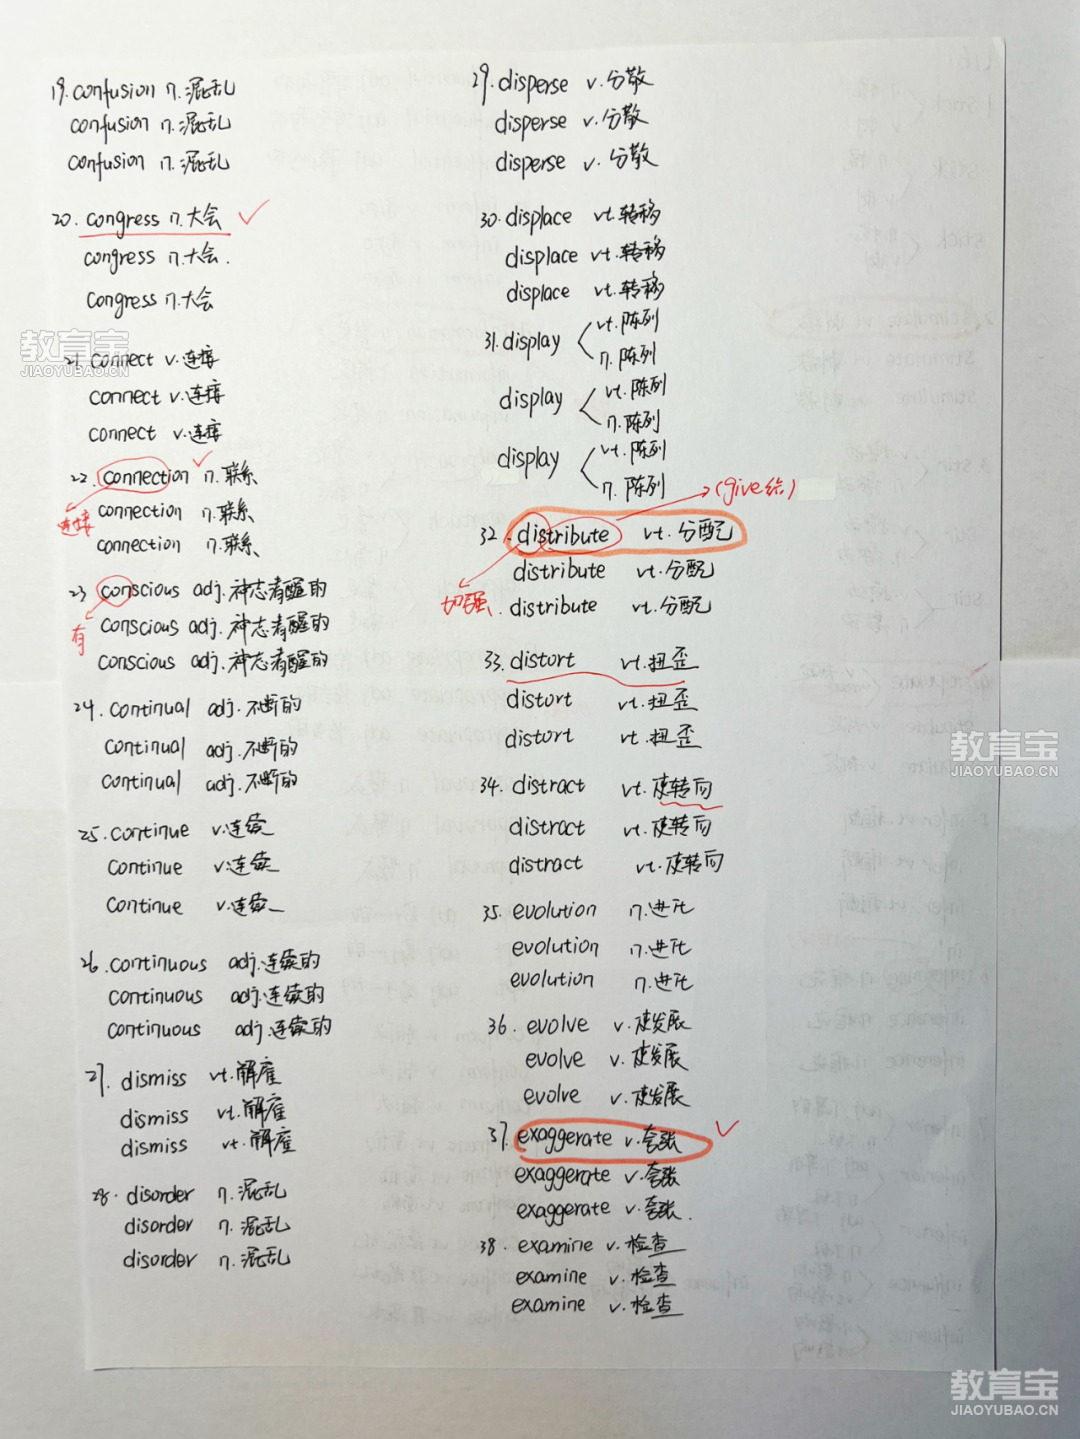 19. confusion n.混乱
confusion n.混乱
confusion n.混乱
20. congress n.大会
congress n.大会.
congress n.大会
21. connect v.连接
connect v.连接
connect v.连接
22. connection n.联系
连接
connection n.联系
connection n.联系
23 conscious adj.神志清醒的
有
conscious adj.神志清醒的
conscious adj.神志清醒的
24. continual adj.不断的
continual adj.不断的
continual adj.不断的
25. continue v.连续
continue v.连续
continue v.连续
26. continuous adj.连续的
continuous adj.连续的
continuous adj.连续的
27. dismiss vt.解雇
dismiss vt.解雇
dismiss vt.解雇
28. disorder n.混乱
disorder n.混乱
disorder n.混乱
29. disperse v.分散
disperse v.分散
disperse v.分散
30. displace vt.转移
displace vt.转移
displace vt.转移
31. display vt.陈列
n.陈列
display vt.陈列
n.陈列
display vt.陈列
n.陈列
(give给)
32. distribute vt.分配
distribute vt.分配
加强
distribute vt.分配
33. distort vt.扭歪
distort vt.扭歪
distort vt.扭歪
34. distract vt.使转向
distract vt.使转向
distract vt.使转向
35. evolution n.进化
evolution n.进化
evolution n.进化
36. evolve v.使发展
evolve v.使发展
evolve v.使发展
37. exaggerate v.夸张
exaggerate v.夸张
exaggerate v.夸张.
38. examine v.检查
examine v.检查
examine v.检查
教育宝
JIAOYUBAO.CN
教育宝
JIAOYUBAO.CN
教育宝
JIAOYUBAO.CN